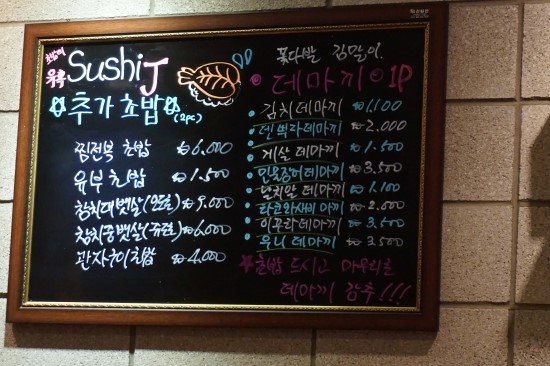 초밥의
유혹 Sushi J
추가 초밥 (2pc)
찜전복 초밥 ₩6,000
유부 초밥 ₩1,500
참치대뱃살(오도로) ₩9,000
참치중뱃살(쥬도로) ₩6,000
관자구이초밥 ₩4,000
꽃다발 김말이
데마끼 1P
김치데마끼 ₩1,100
덴뿌라데마끼 ₩2,000
게살 데마끼 ₩1,500
민물장어데마끼 ₩3,500
날치알 데마끼 ₩1,100
타코와사비 데마끼 ₩2,000
이꾸라 데마끼 ₩3,500
우니 데마끼 ₩3,500
초밥 드시고 마무리로
데마끼 강추!!!